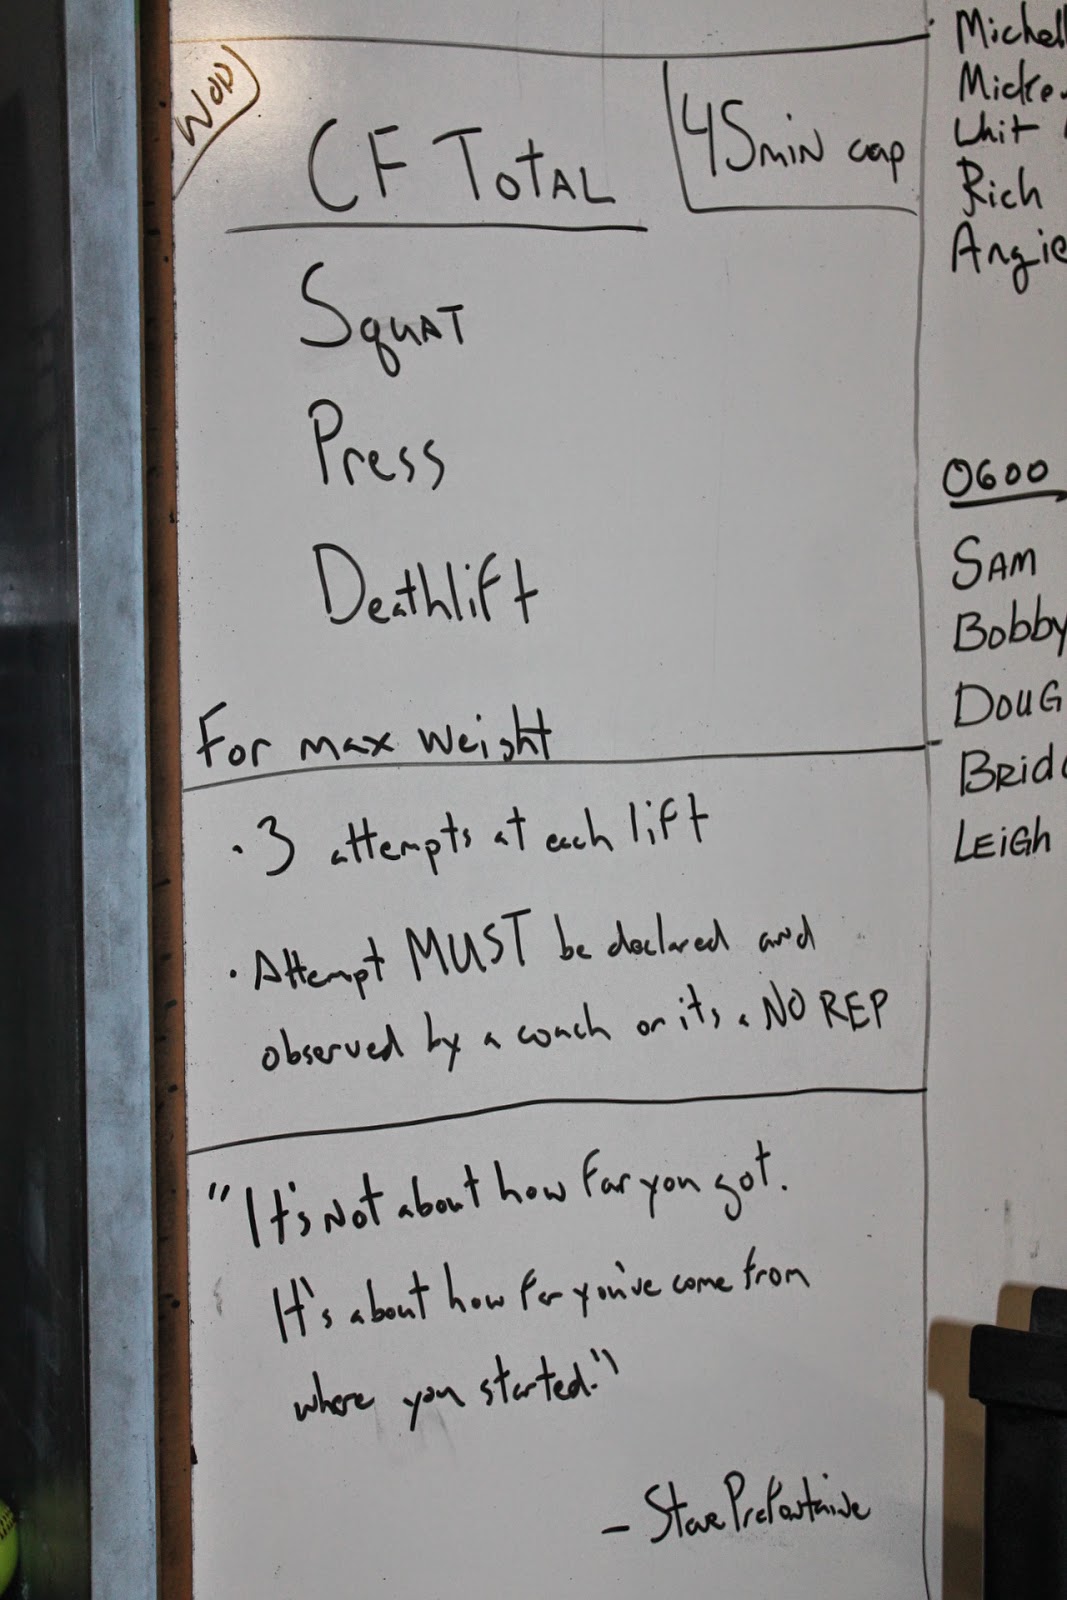 WOD
CF TOTAL
45 min cap
Squat
Press
Deathlift
For max weight
· 3 attempts at each lift
· Attempt MUST be declared and
observed by a coach or its a NO REP
"It's Not about how far you got.
It's about how far you've come from
where you started."
- Steve Prefontaine
Michell
Micke
Whit
Rich
Angie
0600
SAM
Bobby
DOUG
BRID
LEIGH